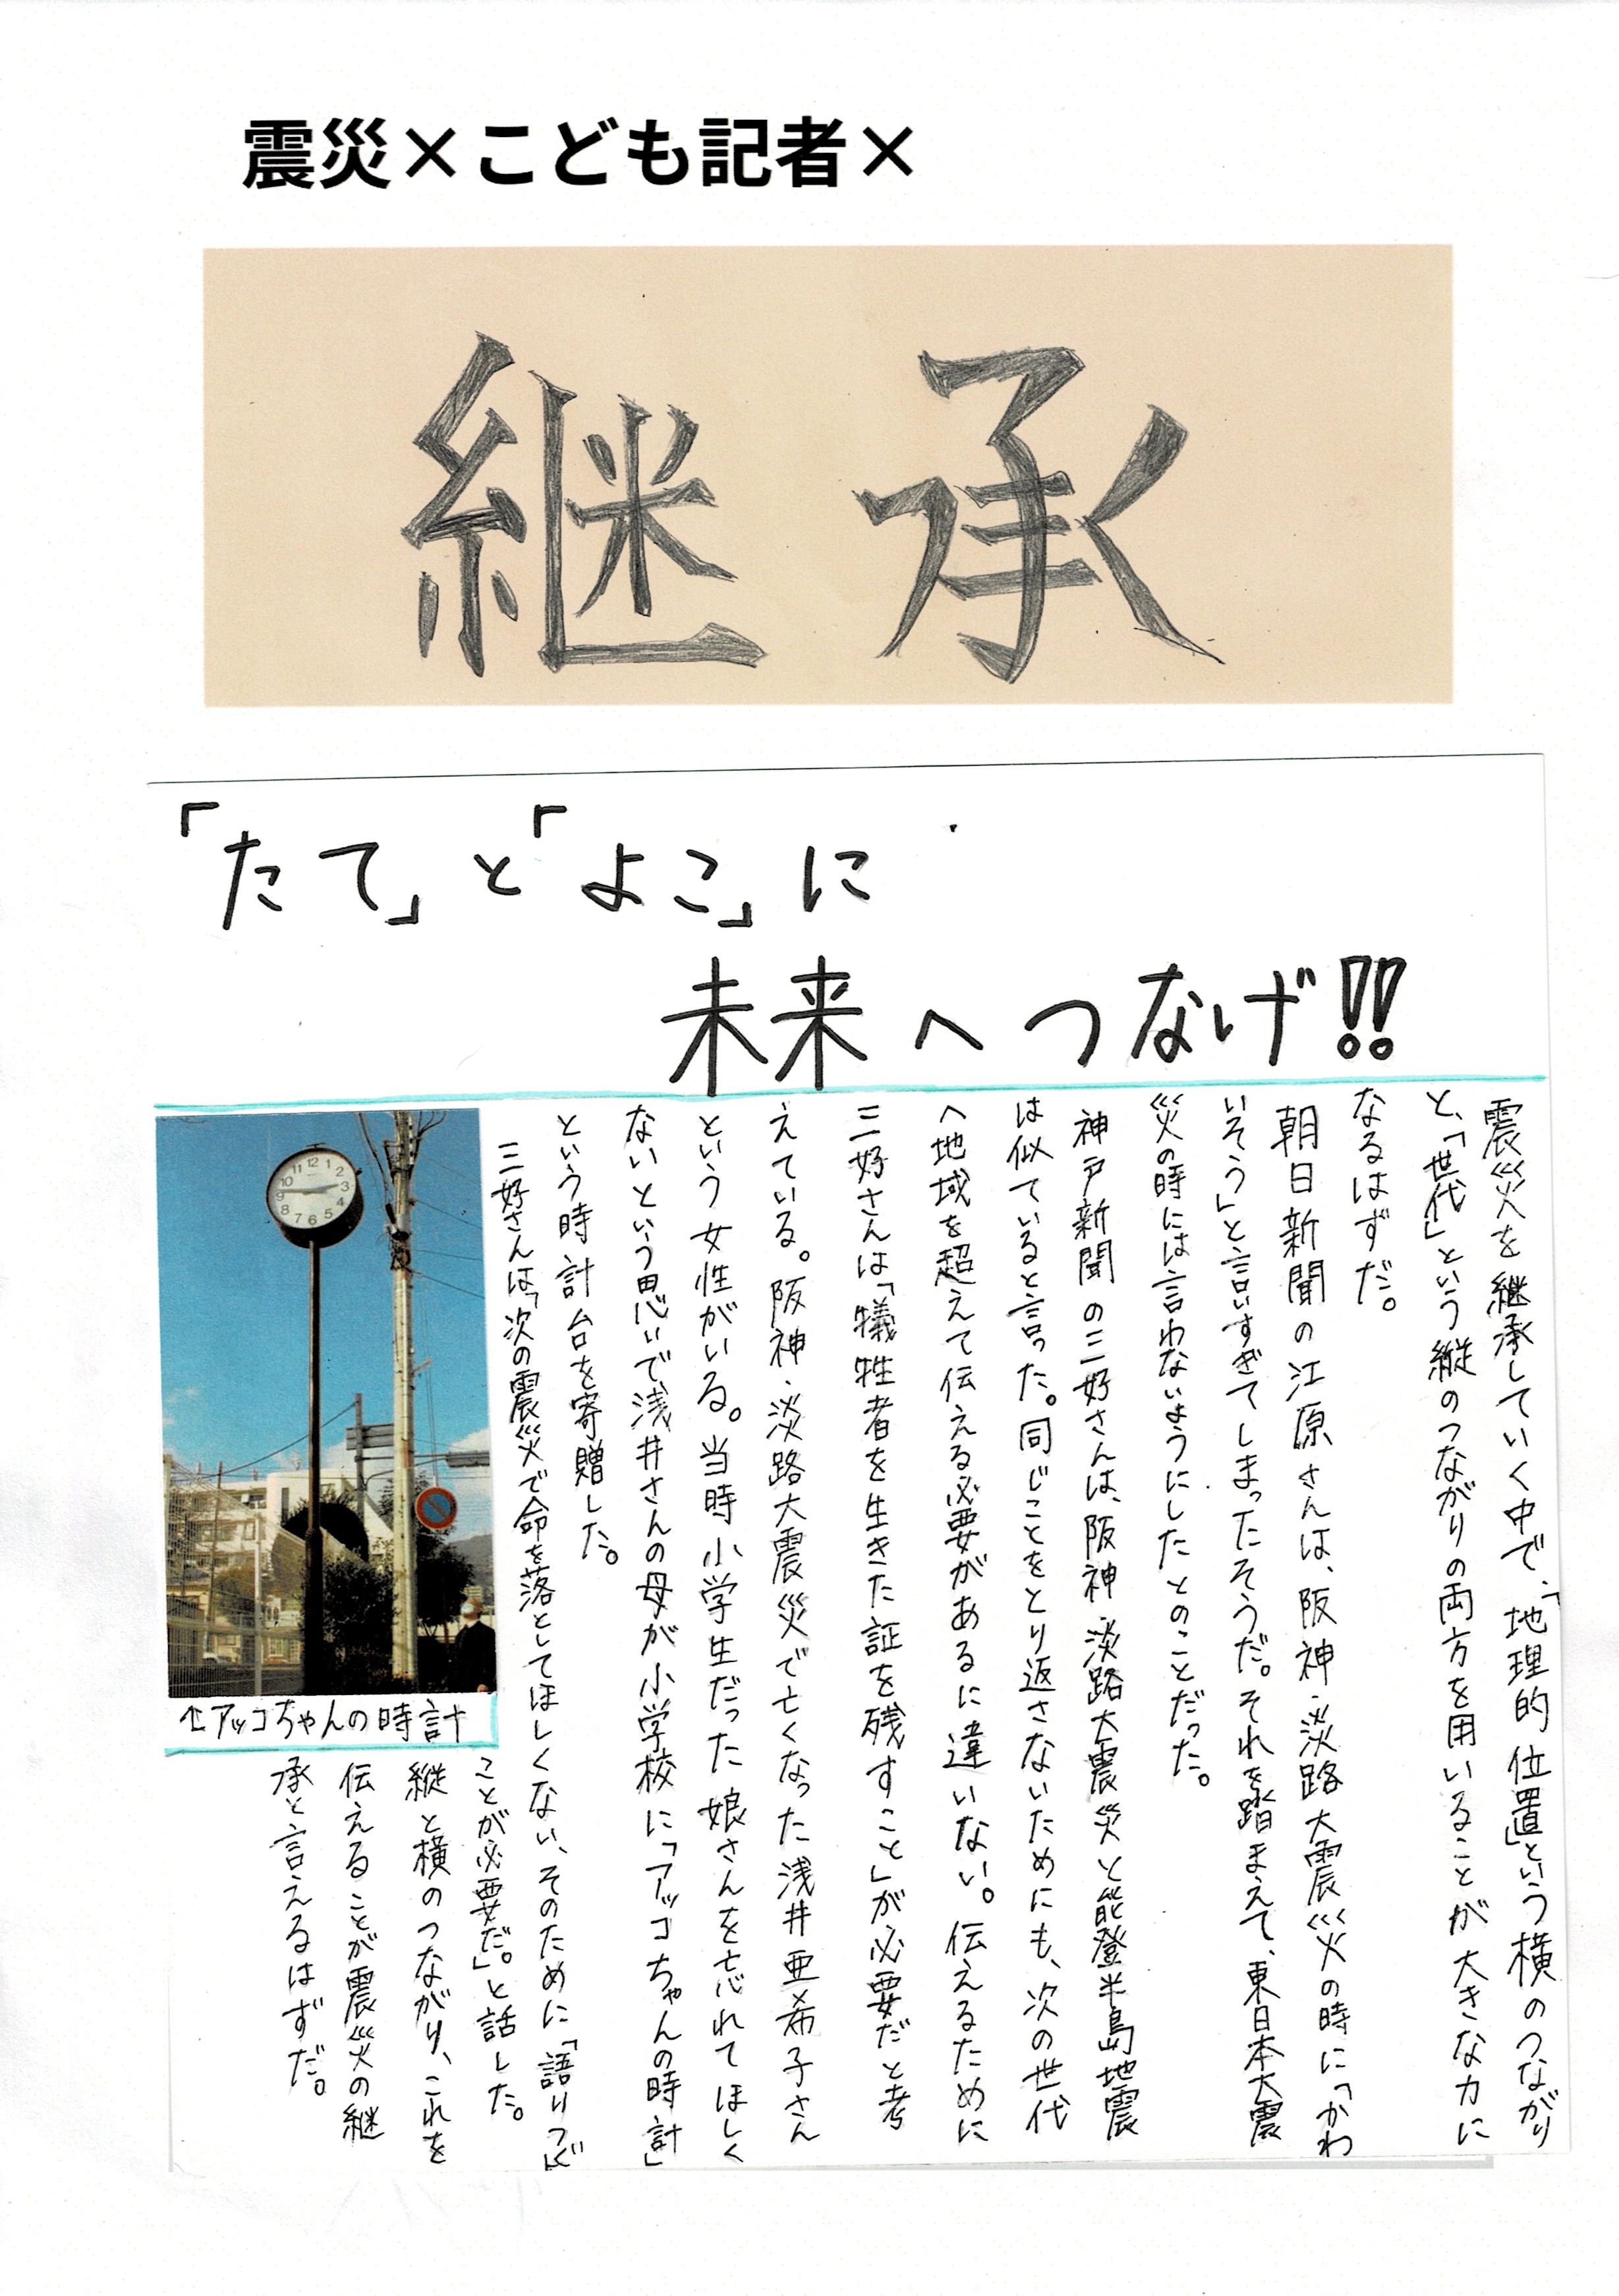 震災×こども記者×
継承
「たて」と「よこ」に
未来へつなげ!!
震災を継承していく中で、「地理的位置」という横のつながり
と、「世代」という縦のつながりの両方を用いることが大きな力に
なるはずだ。
朝日新聞の江原さんは、阪神・淡路大震災の時に「かわ
いそう」と言いすぎてしまったそうだ。それを踏まえて、東日本大震
災の時には言わないようにしたとのことだった。
神戸新聞の三好さんは、阪神・淡路大震災と能登半島地震
は似ていると言った。同じことをとり返さないためにも、次の世代
へ地域を超えて伝える必要があるに違いない。伝えるために
三好さんは「犠牲者を生きた証を残すこと」が必要だと考
えている。阪神・淡路大震災で亡くなった浅井亜希子さん
という女性がいる。当時小学生だった娘さんを忘れてほしく
ないという思いで、浅井さんの母が小学校に「アッコちゃんの時計」
という時計台を寄贈した。
三好さんは「次の震災で命を落としてほしくない、そのために「語りつぐ」
ことが必要だ」。と話した。
縦と横のつながり、これを
伝えることが震災の継
承と言えるはずだ。
↑アッコちゃんの時計
12
1
2
3
4
5
6
7
8
9
10
11